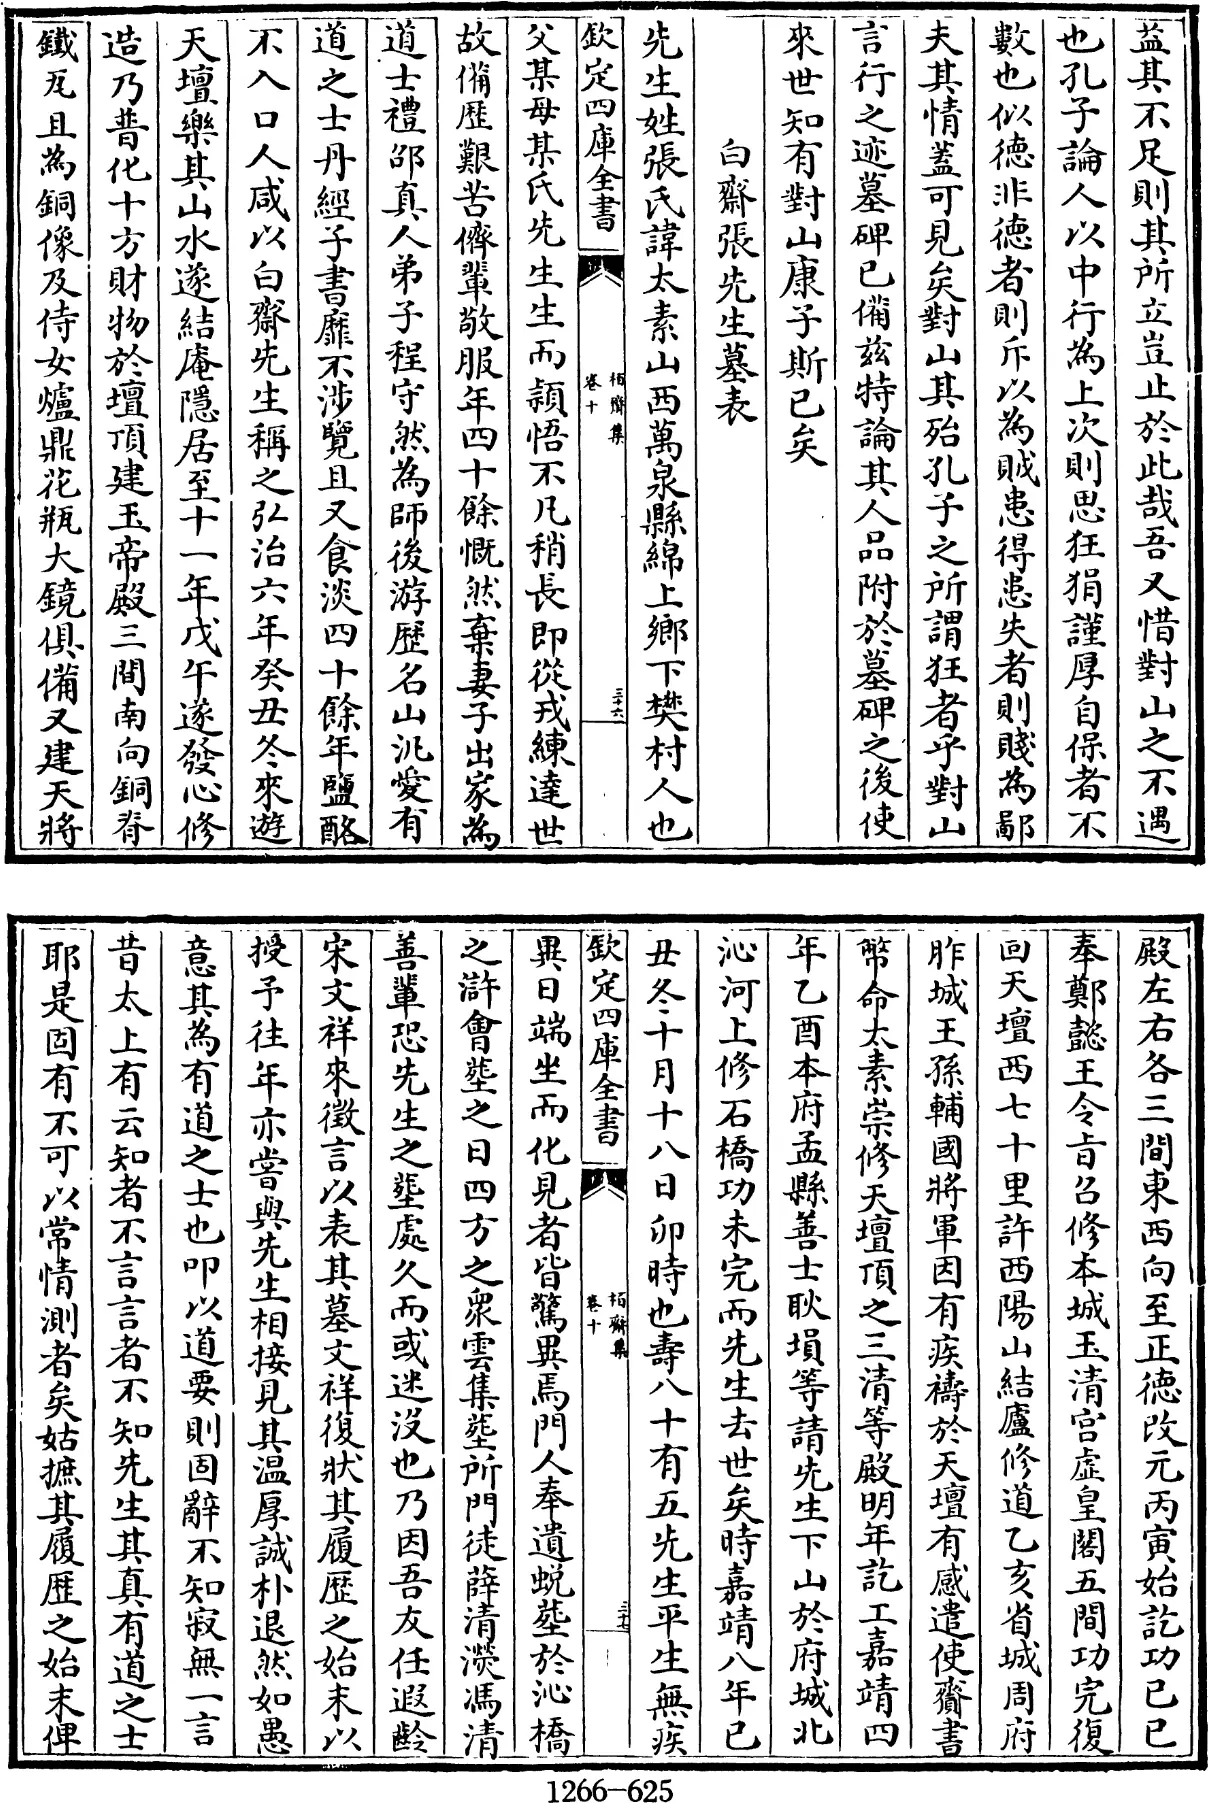 益其不足則其所立豈止於此哉吾又惜對山之不遇
也孔子論人以中行為上次則思狂狷謹厚自保者不
數也似德非德者則斥以為賊患得患失者則賤為鄙
夫其情蓋可見矣對山其殆孔子之所謂狂者乎對山
言行之迹墓碑已備兹特論其人品附於墓碑之後使
來世知有對山康子斯已矣
白齋張先生墓表
先生姓張氏諱太素山西萬泉縣綿上鄉下樊村人也
欽定四庫全書
栢齋集
卷十
三十六
父某母某氏先生生而頴悟不凡稍長即從戎練達世
故備歷艱苦儕輩敬服年四十餘慨然棄妻子出家為
道士禮邵真人弟子程守然為師後游歷名山汎愛有
道之士丹經子書靡不涉覽且又食淡四十餘年鹽酪
不入口人咸以白齋先生稱之弘治六年癸丑冬來遊
天壇樂其山水遂結庵隱居至十一年戊午遂發心修
造乃普化十方財物於壇頂建玉帝殿三間南向銅脊
鐵瓦且為銅像及侍女爐鼎花瓶大鏡俱備又建天將
殿左右各三間東西向至正德改元丙寅始訖功已巳
奉鄭懿王令旨召修本城玉清宫虚皇閣五間功完復
回天壇西七十里許西陽山結廬修道乙亥省城周府
胙城王孫輔國將軍因有疾禱於天壇有感遣使齎書
幣命太素崇修天壇頂之三清等殿明年訖工嘉靖四
年乙酉本府孟縣善士耿塤等請先生下山於府城北
沁河上修石橋功未完而先生去世矣時嘉靖八年已
丑冬十月十八日卯時也壽八十有五先生平生無疾
欽定四庫全書
栢齋集
卷十
三十七
異日端坐而化見者皆驚異焉門人奉遺蜕塟於沁橋
之滸會塟之日四方之衆雲集塟所門徒薛清濙馮清
善輩恐先生之塟處久而或迷没也乃因吾友任遐齡
宋文祥來徵言以表其墓文祥復狀其履歷之始末以
授予往年亦嘗與先生相接見其温厚誠朴退然如愚
意其為有道之士也叩以道要則固辭不知寂無一言
昔太上有云知者不言言者不知先生其真有道之士
耶是固有不可以常情測者矣姑摭其履歷之始末俾
1266-625